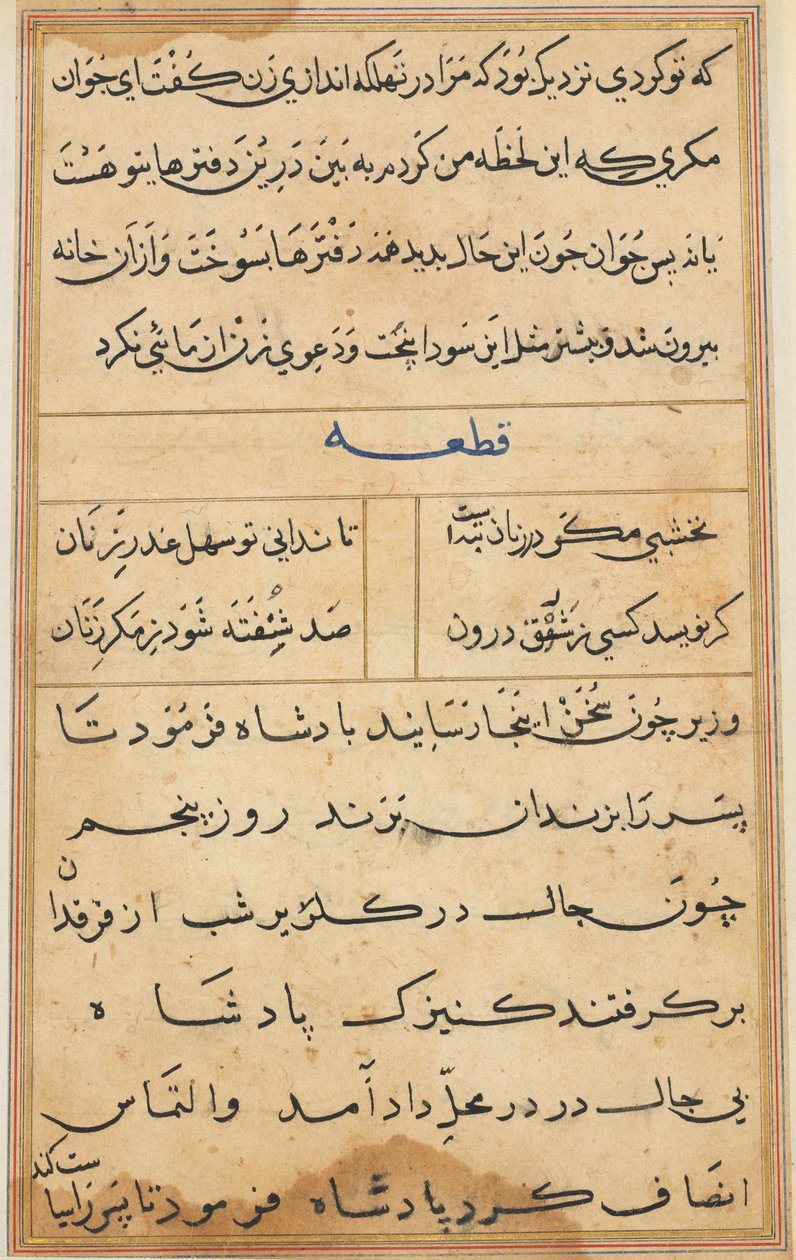 که تو کردی نزدیک بود که مرا در تهلکه اندازی زن گفت ای جوان
مکری که این لحظه من کردم به بین درین دفترها بتو هست
یا نه پس جوان چون این حال بدید همه دفترها بسوخت و از آن خانه
بیرون شد و بیشتر مثل این سودا نپخت و دعوی زن ازمائی نکرد
قطعه
نخشبی مکر در زنان تیداست
تا ندانی تو سهل غدر زنان
کر نویسد کسی ز شقق درون
صد شیفته شود ز مکر زنان
وزیر چون سخن اینجا رسانید بادشاه فرمود تا
پسر را بزندان برند روز پنجم
چون جال در کلاریر شب از فرقدان
بر کرفتند کنیزک پادشاه
بی جال در در محل داد آمد والتماس
انصاف کرد پادشاه فرمود تا پسر را سیاست کند